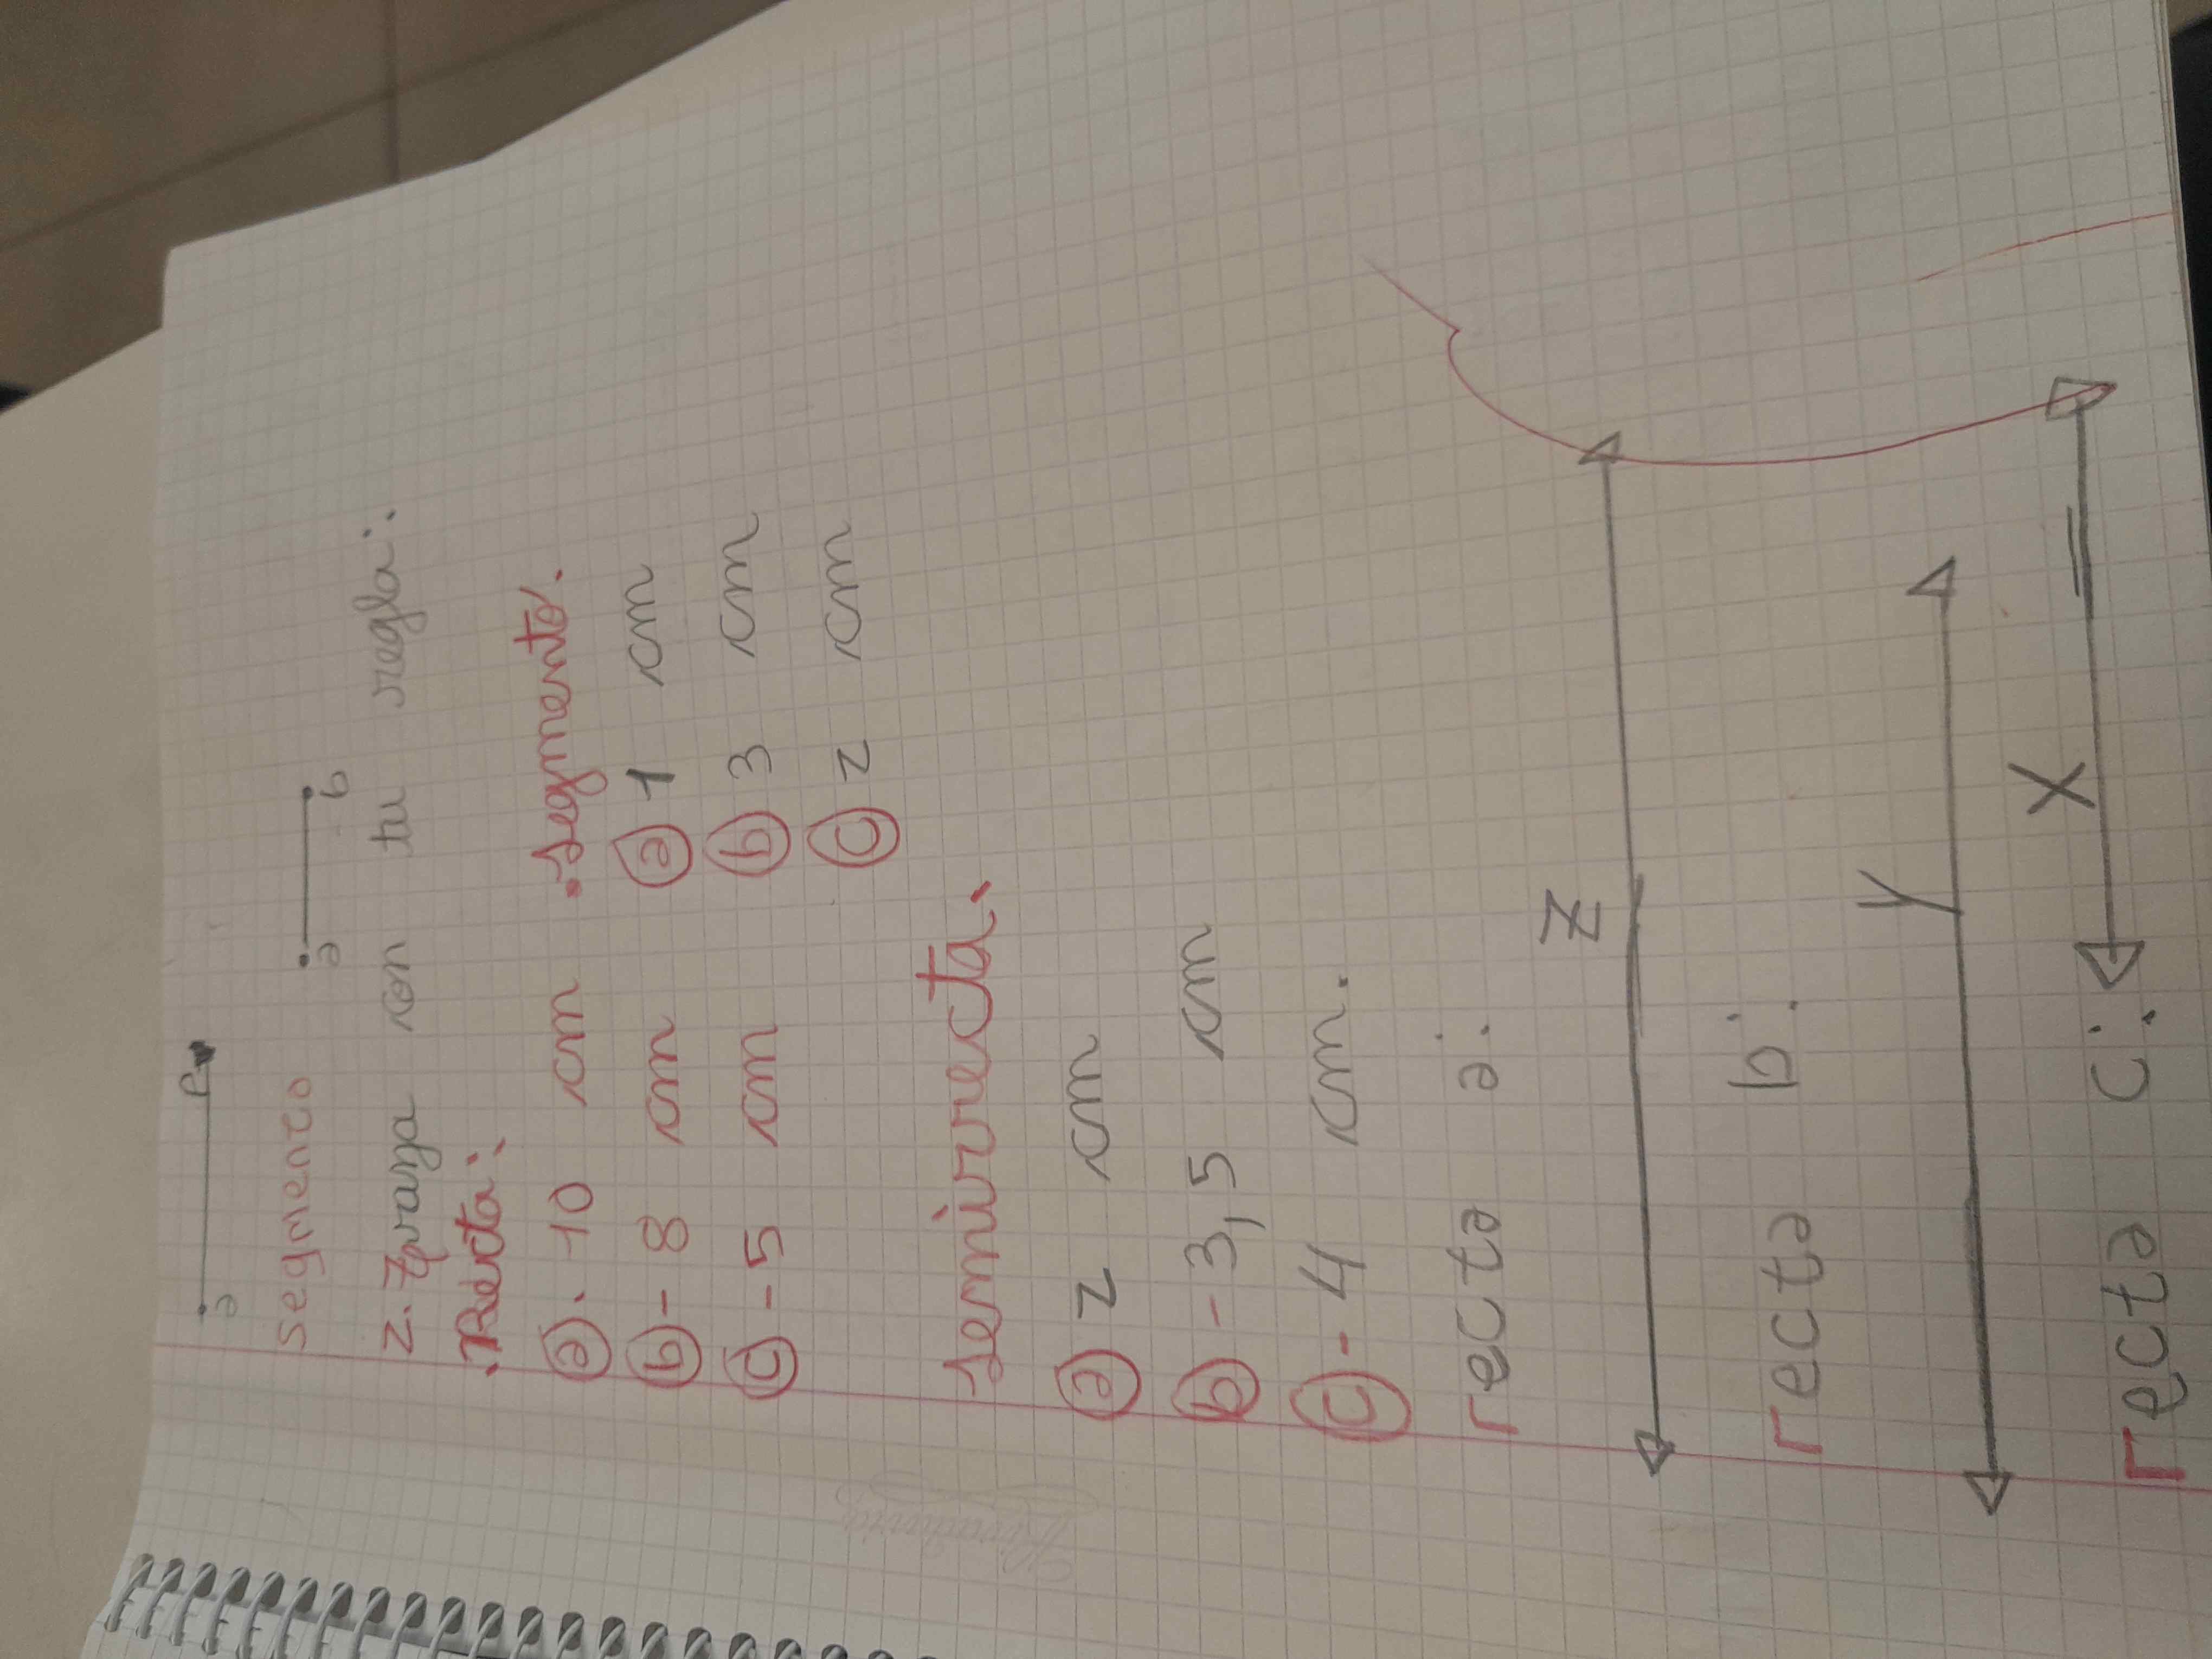 a
segmento
a b
2. Traza con tu regla:
. Recta: . Segmento.
a. 10 cm a 1 cm
b - 8 cm b 3 cm
c - 5 cm c 2 cm
Semirrecta.
a 2 cm
b - 3,5 cm
c - 4 cm.
recta a:
z
recta b:
y
recta c: X